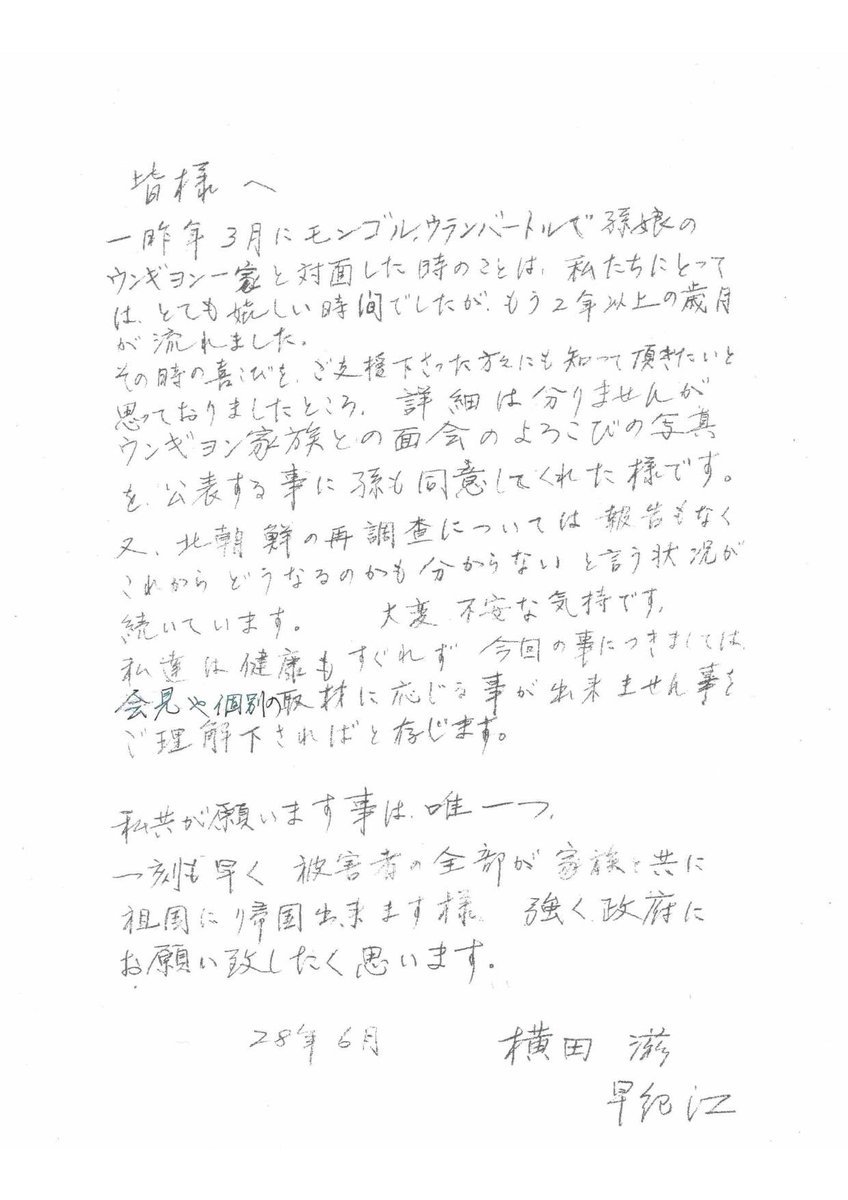 皆様へ
一昨年3月にモンゴル、ウランバートルで孫娘の
ウンギョン一家と対面した時のことは、私たちにとって
は、とても嬉しい時間でしたが、もう2年以上の歳月
が流れました。
その時の喜こびを、ご支援下さった方々にも知って頂きたいと
思っておりましたところ、詳細は分りませんが
ウンギョン家族との面会のよろこびの写真
を、公表する事に孫も同意してくれた様です。
又、北朝鮮の再調査については報告もなく
これからどうなるのかも分からないと言う状況が
続いています。 大変不安な気持です。
私達は健康もすぐれず 今回の事につきましては、
会見や個別の取材に応じる事が出来ません事を
ご理解下さればと存じます。
私共が願います事は、唯一つ、
一刻も早く 被害者の全部が家族と共に
祖国に帰国出来ます様、強く政府に
お願い致したく思います。
28年6月 横田 滋
早紀江